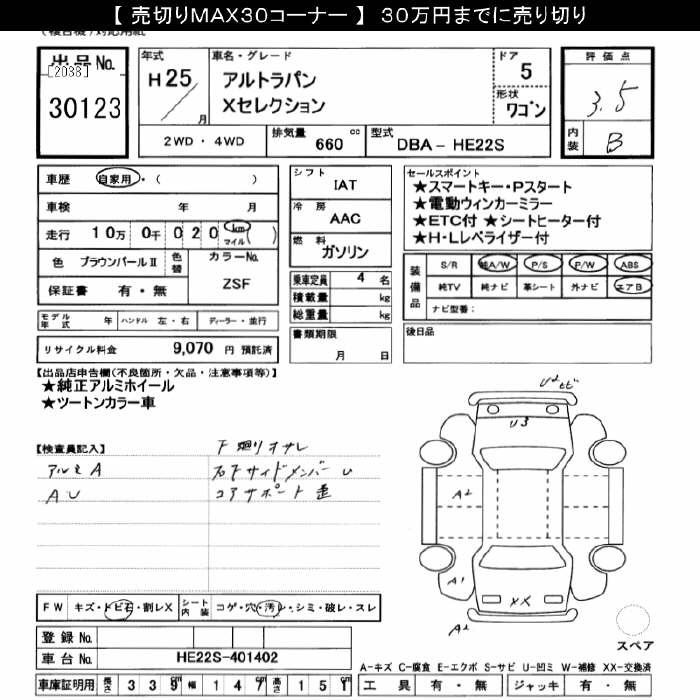 【 売切りMAX30コーナー 】 30万円までに売り切り
出品No.
[2038]
30123
年式
H25
月
車名・グレード
アルトラパン
Xセレクション
ドア
5
形状
ワゴン
評価点
3.5
内装
B
2WD・4WD
排気量 660 cc
型式 DBA-HE22S
車歴 自家用・( )
車検 年 月
走行 10万 0千 020 km マイル ( )
色 ブラウンパールⅡ 色替
カラーNo.
ZSF
保証書 有・無
モデル年式 年 ハンドル 左・右 ディーラー・並行
リサイクル料金 9,070 円 預託済
シフト
IAT
冷房
AAC
燃料
ガソリン
乗車定員 4 名
積載量 kg
総重量 kg
書類期限
月 日
セールスポイント
★スマートキー・Pスタート
★電動ウィンカーミラー
★ETC付 ★シートヒーター付
★H・Lレベライザー付
装備品
S/R 純A/W P/S P/W ABS
純TV 純ナビ 革シート 外ナビ エアB
ナビ型番:
後日品
【出品店申告欄(不良箇所・欠品・注意事項等)】
★純正アルミホイール
★ツートンカラー車
【検査員記入】
アルミA
AU
下廻りオサレ
右下サイドメンバーU
コアサポート歪
U2 ヒビ
U3
A2
A1
XX
A2
スペア
FW キズ・トビ石・割レX
シート内装 コゲ・穴・汚レ・シミ・破レ・スレ
登録No.
車台No. HE22S-401402
車庫証明用 長さ 339 幅 147 高さ 151
A-キズ C-腐食 E-エクボ S-サビ U-凹ミ W-補修 XX-交換済
工具 有・無 ジャッキ 有・無